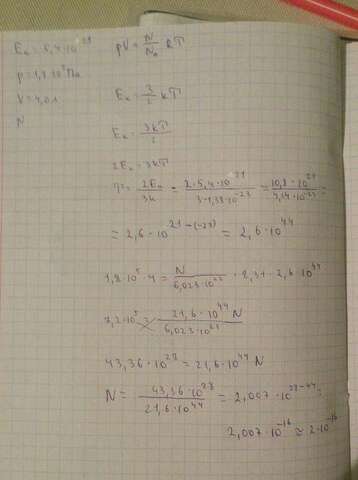 E_k = 5,4 · 10^21
p = 1,8 · 10^5 Pa
V = 4,0 l
N
pV = N/N_0 RT
E_k = 3/2 kT
E_k = 3kT/2
2E_k = 3kT
T = 2E_k/3k = 2 · 5,4 · 10^21/3 · 1,38 · 10^-23 = 10,8 · 10^21/4,14 · 10^-23 =
= 2,6 · 10^21-(-23) = 2,6 · 10^44
1,8 · 10^5 · 4 = N/6,023 · 10^23 · 8,31 · 2,6 · 10^44
7,2 · 10^5 = 21,6 · 10^44 N/6,023 · 10^23
43,36 · 10^28 = 21,6 · 10^44 N
N = 43,36 · 10^28/21,6 · 10^44 = 2,007 · 10^28-44 =
2,007 · 10^-16 ≈ 2 · 10^-16